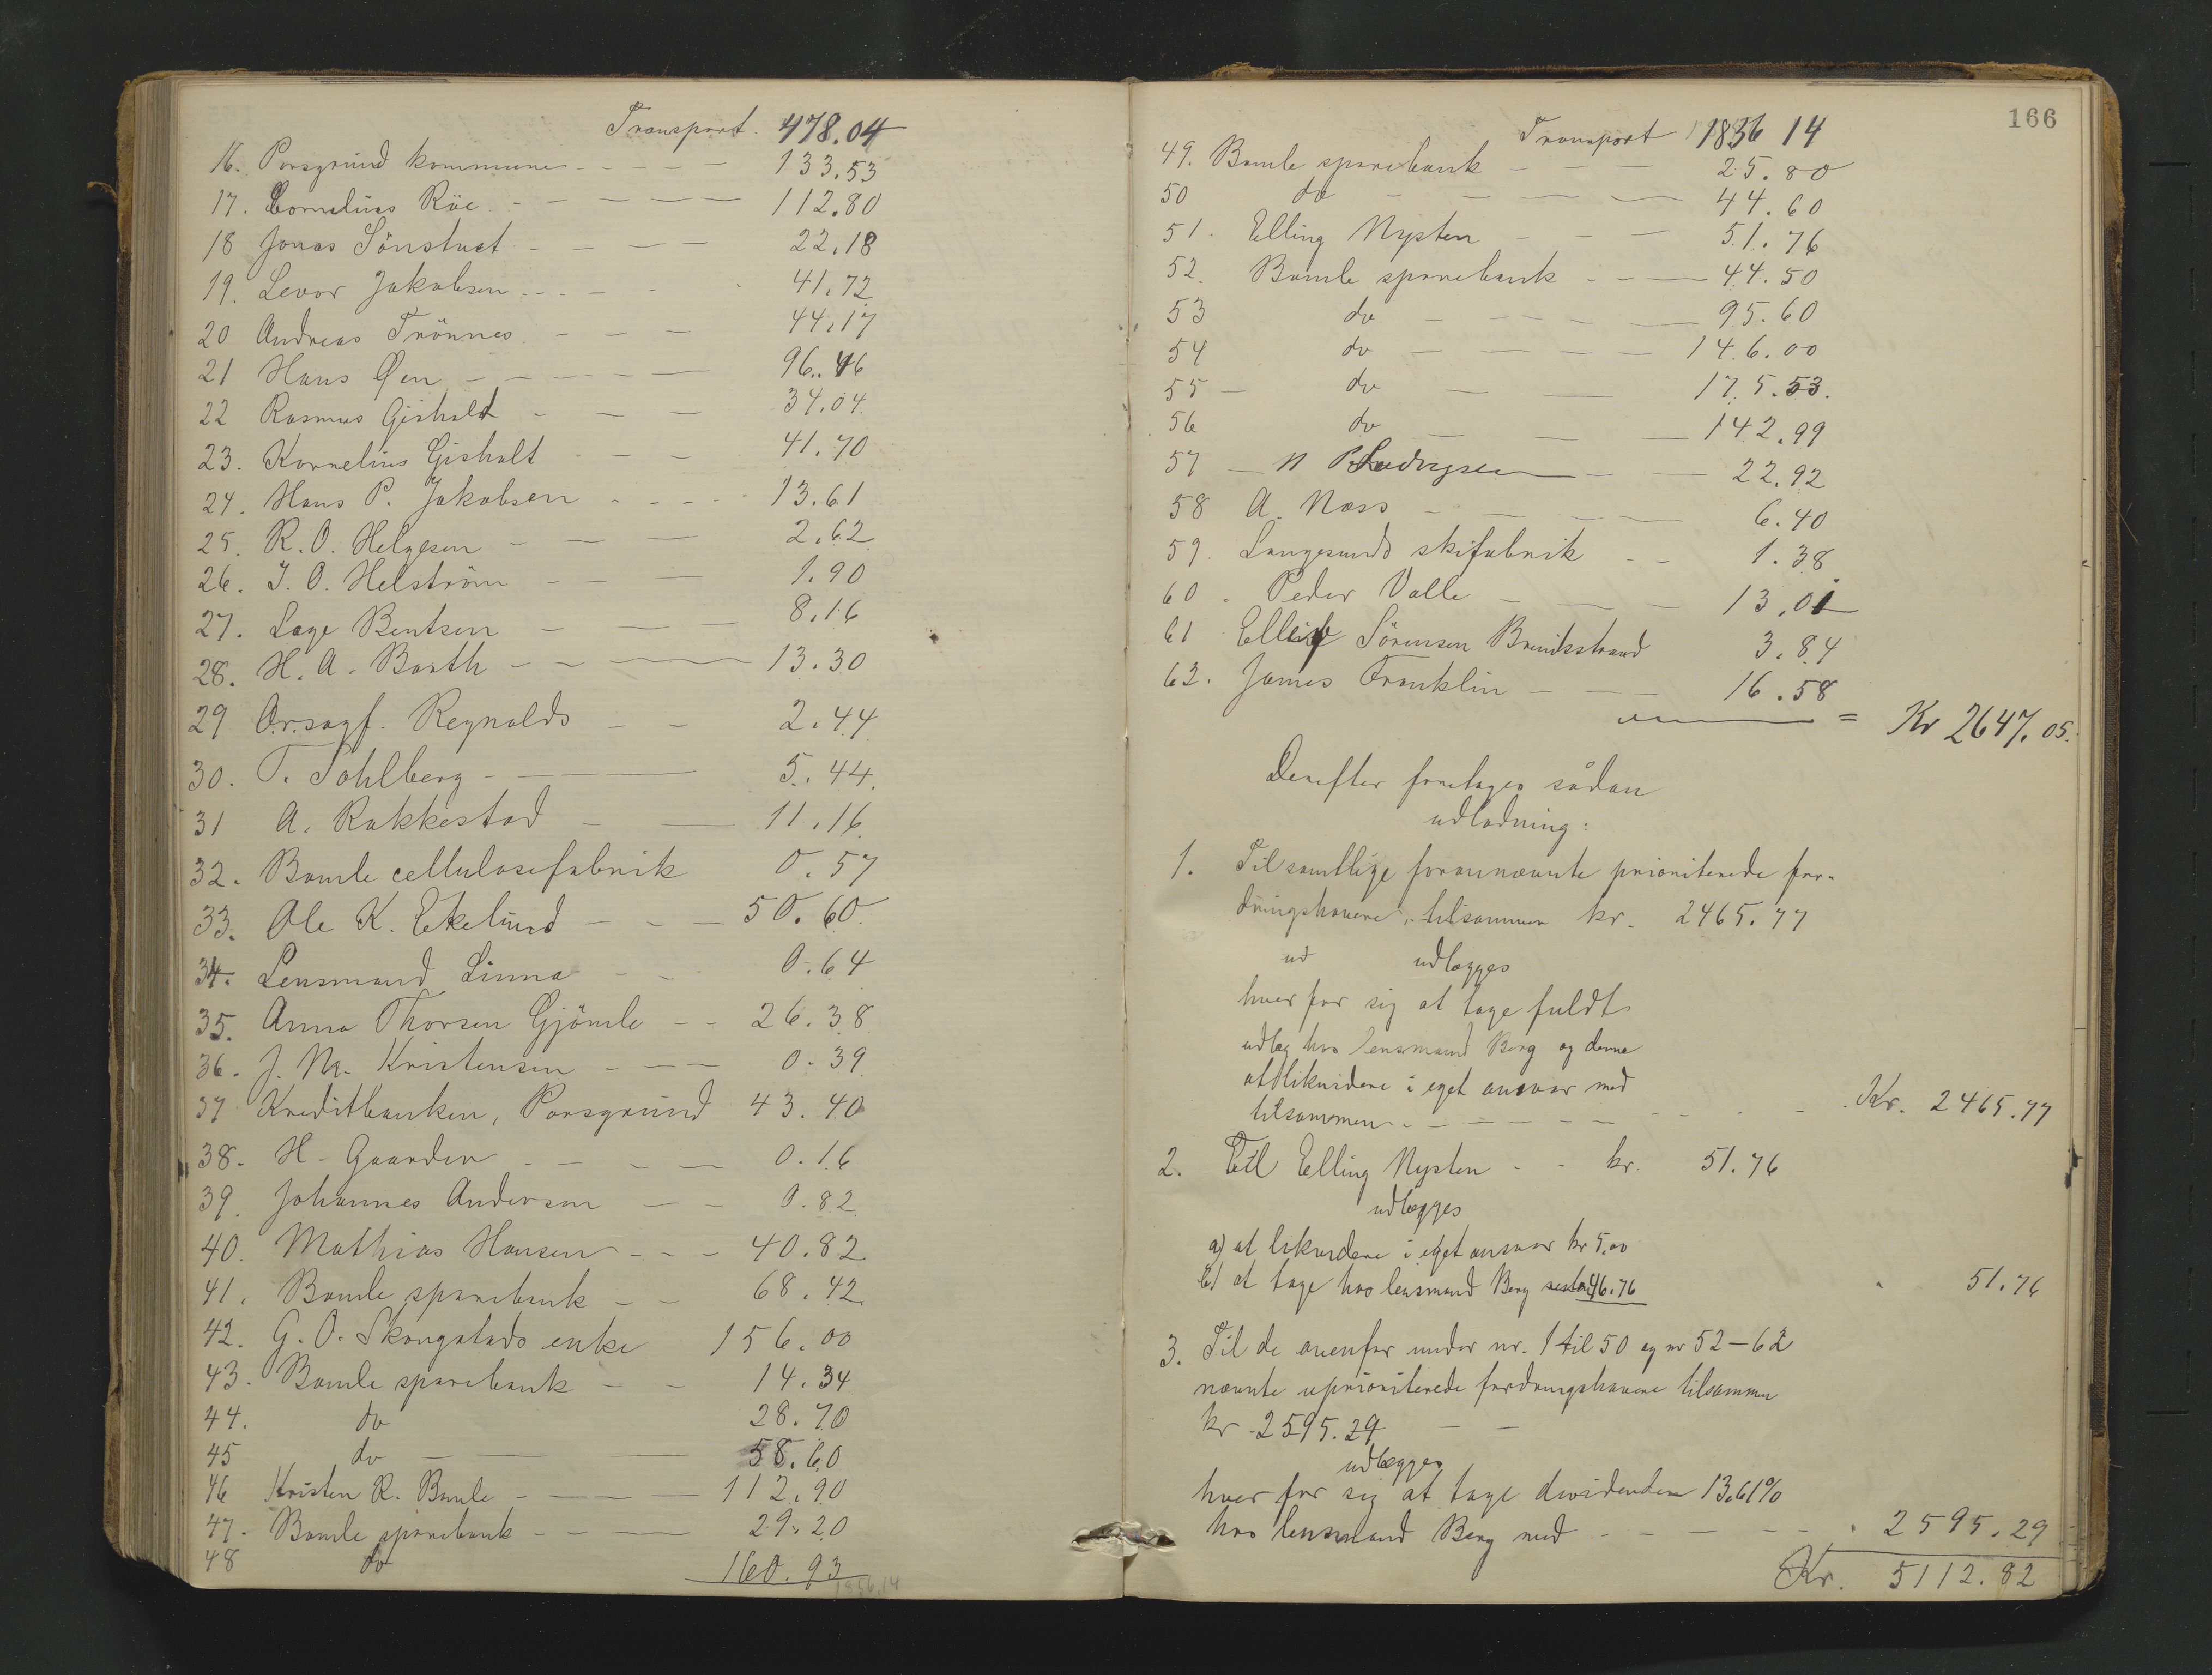 Transport. 478.04
16. Porsgrund kommune - - - - 133.53
17. Cornelius Röe - - - - - 112.80
18 Jonas Sönstuet - - - - 22.18
19. Levor Jakobsen - - - 41.72
20 Andreas Trönnes - - - 44.17
21 Hans Øen - - - - - 96.46
22 Rasmus Gisholt - - - 34.04
23. Kornelius Gisholt - - - 41.70
24. Hans P. Jakobsen - - - - 13.61
25. R. O. Helgesen - - - 2.62
26. I. O. Helström - - - 1.90
27. Lage Bentsen - - - 8.16
28. H. A. Barth - - - 13.30
29 O.r.sagf. Reynolds - - 2.44
30. T. Sahlberg - - - 5.44
31 A. Rakkestad - - 11.16
32. Bamle cellulosefabrik 0.57
33. Ole K. Ekelund - - - 50.60
34. Lensmand Linna - - 0.64
35. Anna Thorsen Gjömle - - 26.38
36. J. M. Kristensen - - - 0.39
37 Kreditbanken, Porsgrund 43.40
38. H. Gaarder - - - - 0.16
39. Johannes Andersen - - 0.82
40. Mathias Hansen - - - 40.82
41. Bamle sparebank - - 68.42
42. G. O. Skougstads enke 156.00
43. Bamle sparebank - - 14.34
44. do 28.70
45 do - - 58.60
46 Kristen R. Bamle - - - - 112.90
47. Bamle sparebank - - - 29.20
48 do 160.93
166
Transport 1836 14
49. Bamle sparebank - - - 25.80
50 do - - - - 44.60
51. Elling Nysten - - - 51.76
52. Bamle sparebank - - - 44.50
53 do - - - - 95.60
54 do - - - - 146.00
55 - do - - 175.53.
56 do - - - 142.99
57 - N P Ludvigsen - - 22.92
58 A. Næss - - - 6.40
59. Langesunds skifabrik - - 1.38
60. Peder Valle - - - 13.01
61 Ellef Sörensen 3.84
62. James Franklin - - - 16.58
= Kr 2647.05.
Derefter foretages sådan
udlodning:
1. Til samtlige forannævnte prioriterede for-
dringshavere, tilsammen kr. 2465.77
ud udlægges
hver for sig at tage fuldt
udlæg hos lensmand Berg og denne
at likvidere i eget ansvar med
tilsammen - - - - - - Kr. 2465.77
2. Til Elling Nysten - - kr. 51.76
udlægges
a) at likvidere i eget ansvar kr 5.00
b) at tage hos lensmand Berg resten 46.76 " 51.76
3. Til de ovenfor under nr. 1 til 50 og nr 52-62
nævnte uprioriterede fordringshavere tilsammen
kr 2595.29 - -
udlægges
hver for sig at tage dividenden 13.61%
hos lensmand Berg med - - - - - " 2595.29
Kr. 5112.82